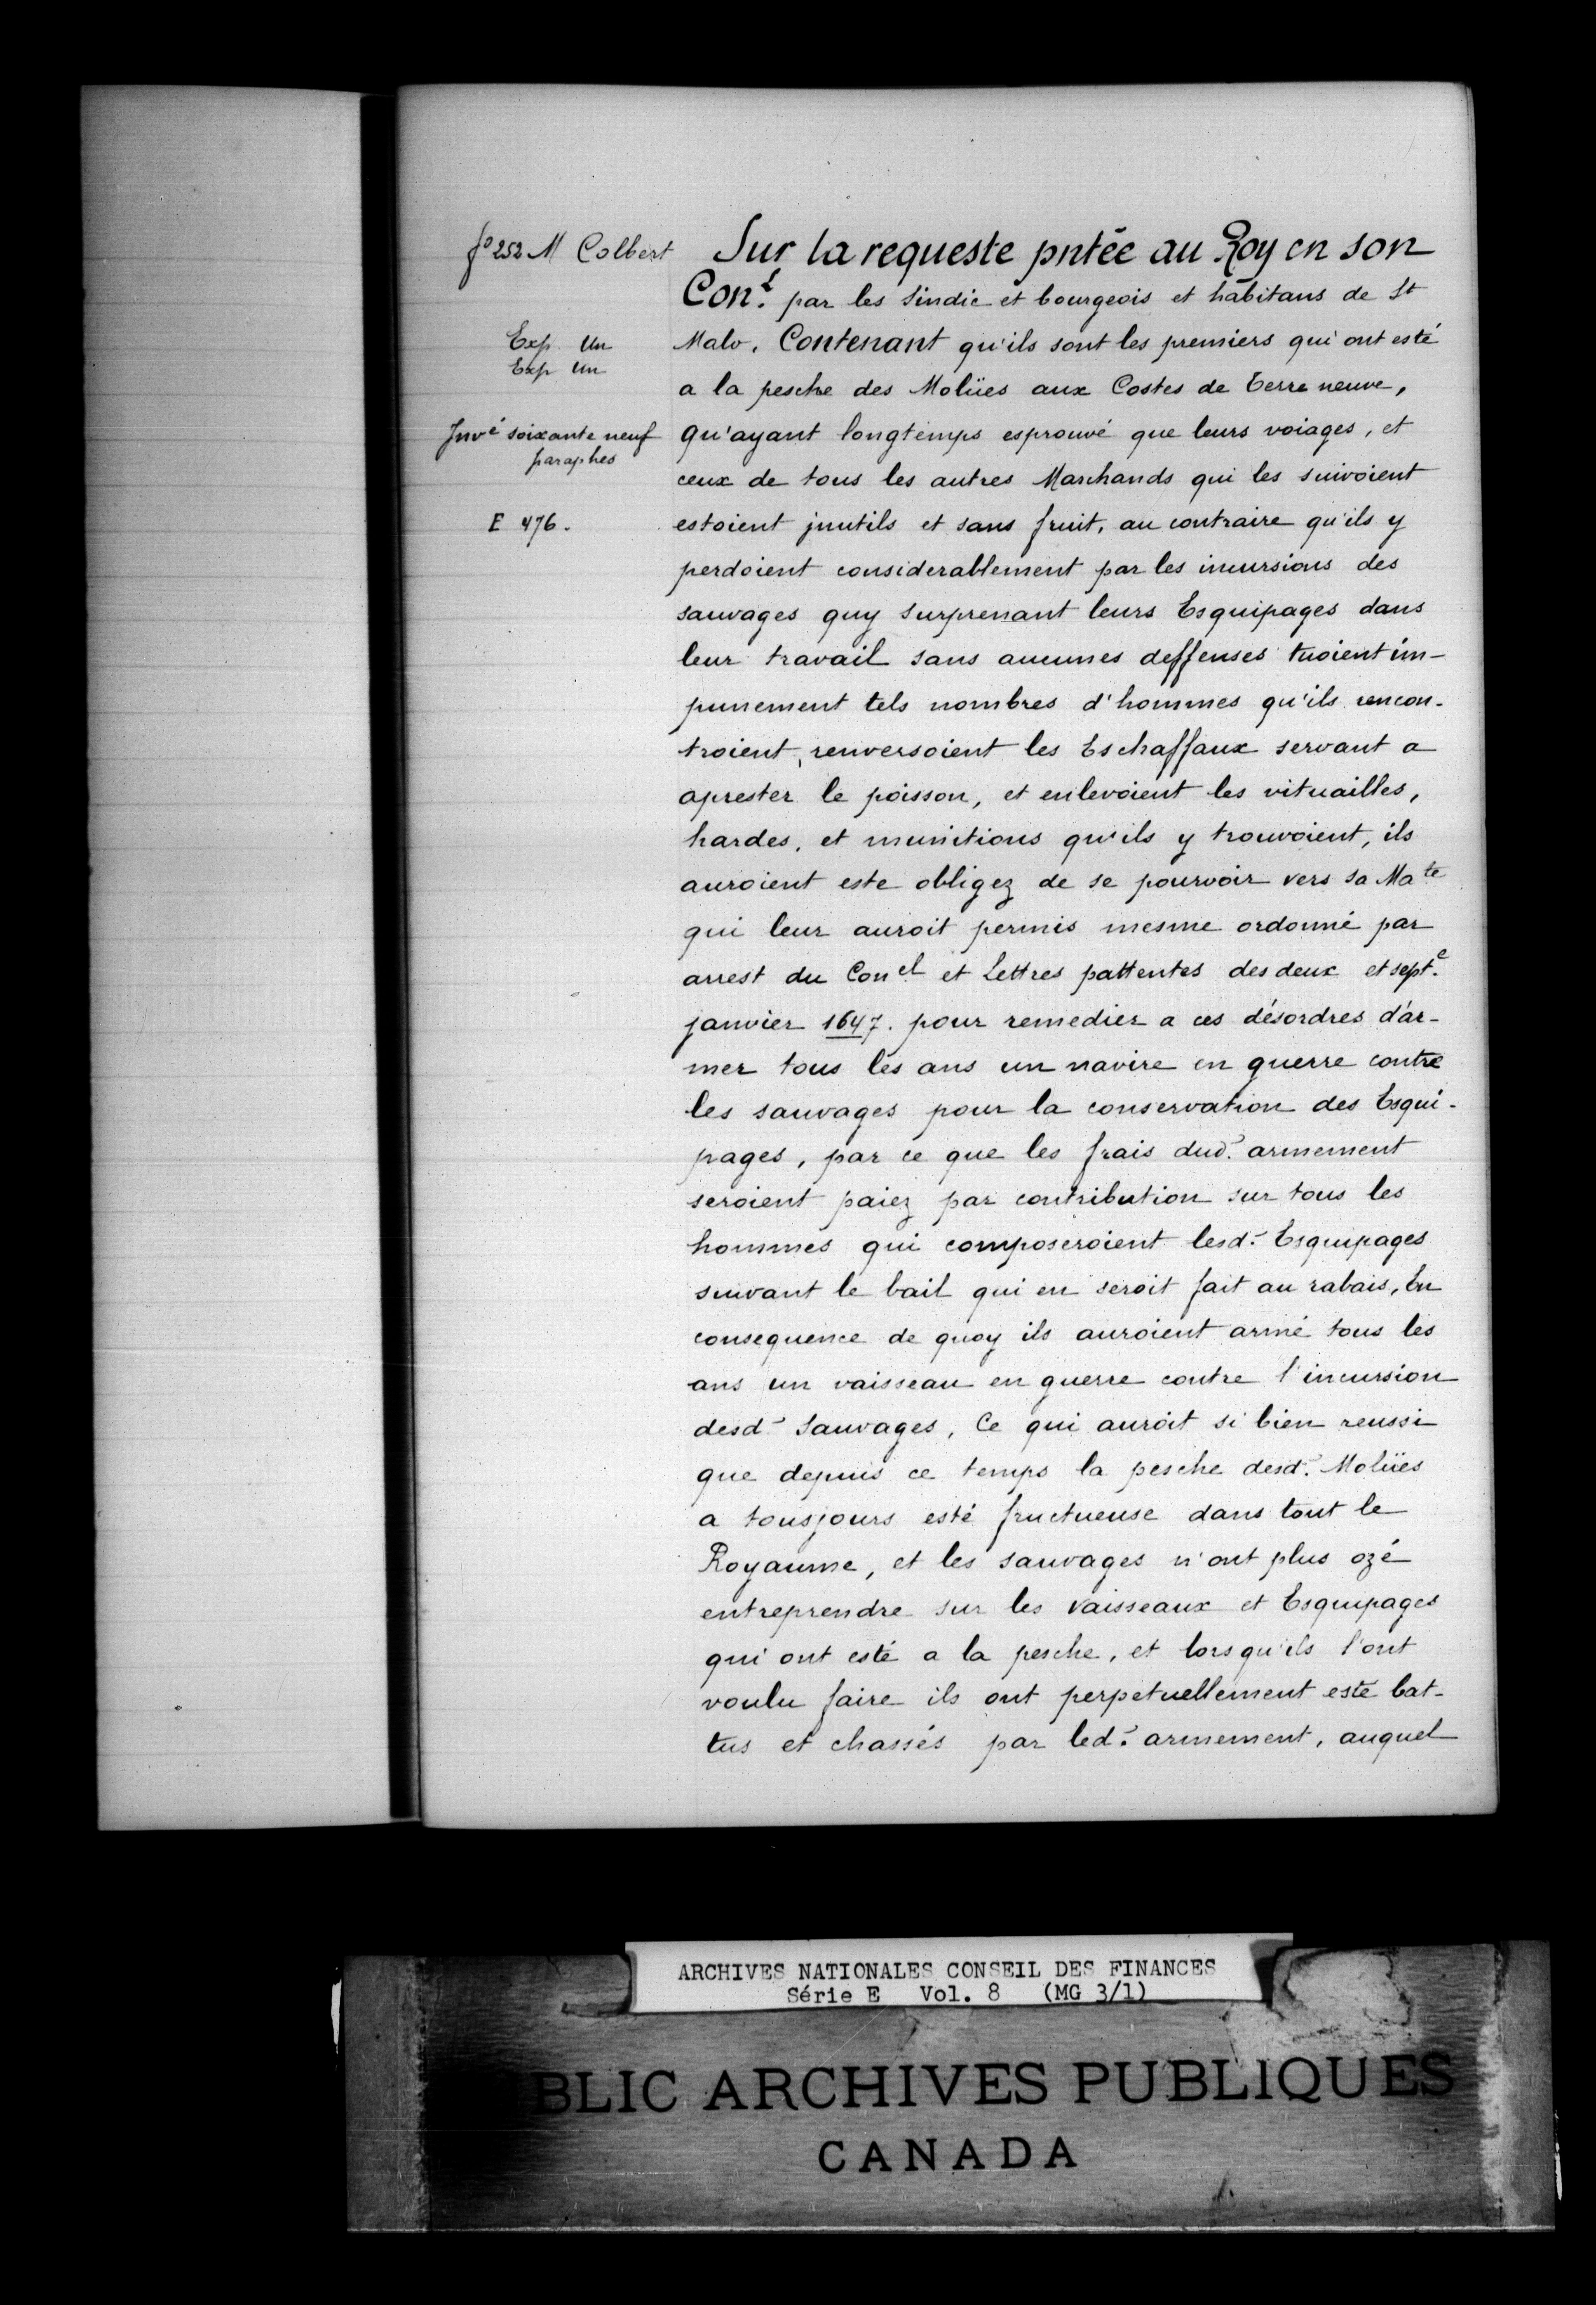 fo 252 M Colbert
Exp Un
Exp Un
Invé soixante neuf
paraphes
E 476.
Sur la requeste pntée au Roy en son
Con.l par les Sindic et bourgeois et habitans de St
Malo. Contenant qu'ils sont les premiers qui ont esté
a la pesche des Moliies aux Costes de terre neuve,
qu'ayant longtemps esprouvé que leurs voiages, et
ceux de tous les autres Marchands qui les suivoient
estoient jnutils et sans fruit, au contraire qu'ils y
perdoient considerablement par les incursions des
sauvages quy surprenant leurs Esquipages dans
leur travail sans aucunes deffenses tuoient im-
punement tels nombres d'hommes qu'ils rencon-
troient, renversoient les Eschaffaux servant a
aprester le poisson, et enlevoient les vituailles,
hardes, et munitions qu'ils y trouvoient, ils
auroient este obligez de se pourvoir vers sa Mate
qui leur auroit permis mesme ordonné par
arrest du Conel et Lettres pattentes des deux et sept.e
janvier 1647. pour remedier a ces désordres d'ar-
mer tous les ans un navire en guerre contre
les sauvages pour la conservation des Esqui-
pages, par ce que les frais dud. armement
seroient paiez par contribution sur tous les
hommes qui composeroient lesd. Esquipages
suivant le bail qui en seroit fait au rabais, En
consequence de quoy ils auroient armé tous les
ans un vaisseau en guerre contre l'incursion
desd. Sauvages, Ce qui auroit si bien reussi
que depuis ce temps la pesche desd. Moliies
a tousjours esté fructueuse dans tout le
Royaume, et les sauvages n'ont plus ozé
entreprendre sur les vaisseaux et Esquipages
qui ont esté a la pesche, et lorsqu'ils l'ont
voulu faire ils ont perpetuellement esté bat-
tus et chassés par led. armement, auquel
ARCHIVES NATIONALES CONSEIL DES FINANCES
Série E Vol. 8 (MG 3/1)
BLIC ARCHIVES PUBLIQUES
CANADA